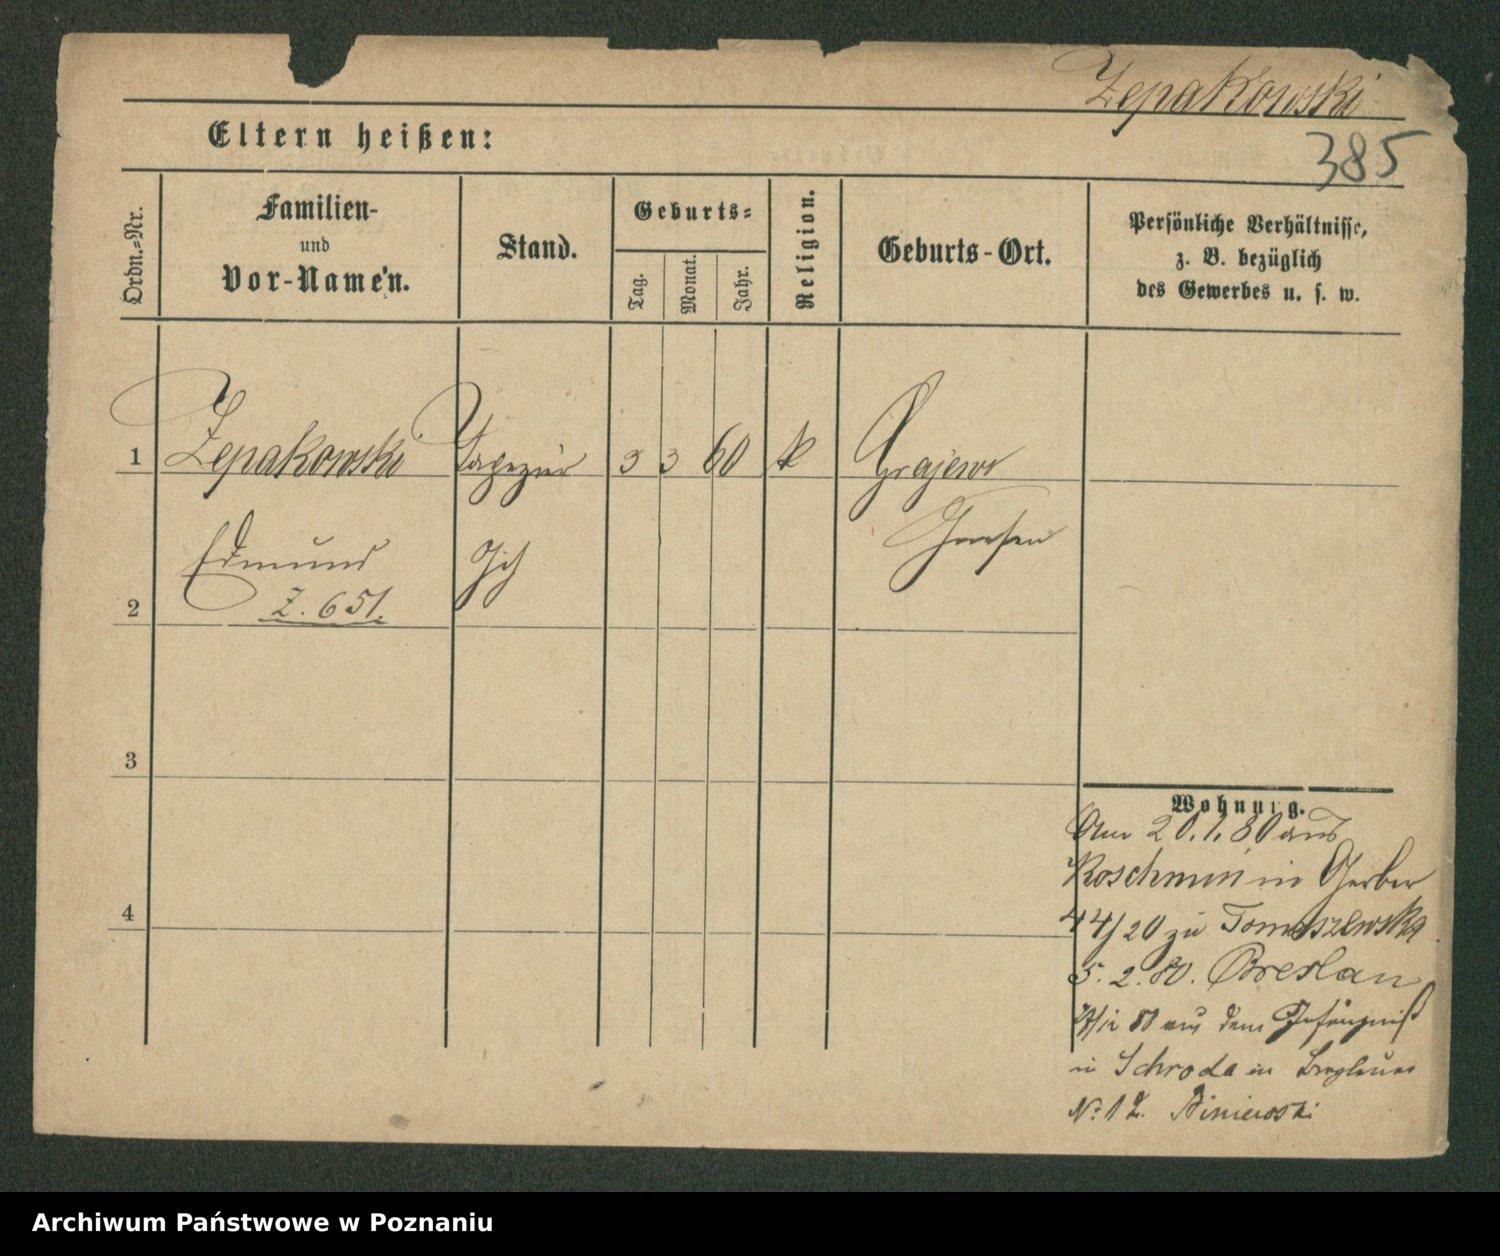 Zepakowski
Eltern heißen:
385
Ordn.-Nr.
Familien-
und
Vor-Namen.
Stand.
Geburts-
Tag.
Monat.
Jahr.
Religion.
Geburts-Ort.
Persönliche Verhältnisse,
z. B. bezüglich
des Gewerbes u. s. w.
1
Zepakowski
3
3
60
k
Grajewo
Gnesen
Edmund
Z. 651.
2
3
4
Wohnung.
Am 20.1.80 aus
Koschmin in Gerber
44/20 zu Tomaszewska
5. 2. 80. Breslau
80 aus dem Gefängniß
in Schroda in Breslauer
Archiwum Państwowe w Poznaniu